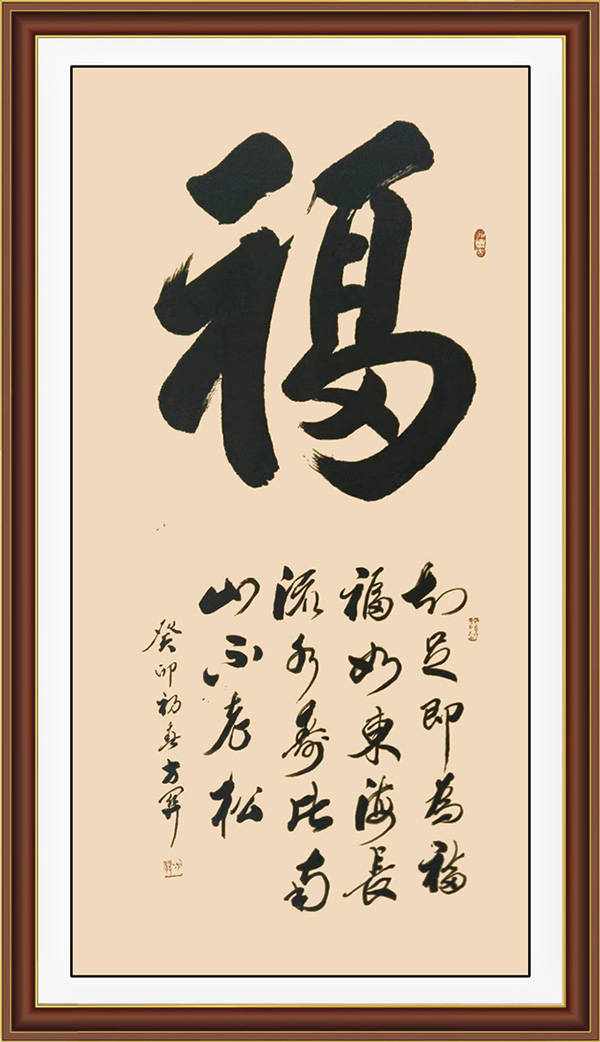 福
知足即为福
福如東海長
流水寿比南
山不老松
癸卯初春方